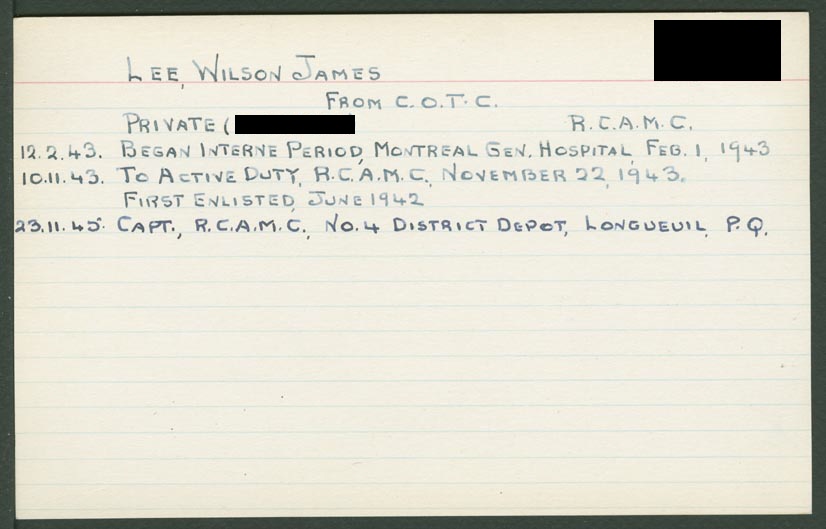 LEE, WILSON JAMES
FROM C.O.T.C.
PRIVATE ( R.C.A.M.C.
12.2.43. BEGAN INTERNE PERIOD, MONTREAL GEN. HOSPITAL, FEB. 1, 1943
10.11.43. TO ACTIVE DUTY, R.C.A.M.C., NOVEMBER 22, 1943.
FIRST ENLISTED, JUNE 1942
23.11.45. CAPT., R.C.A.M.C., NO. 4 DISTRICT DEPOT, LONGUEUIL, P.Q.